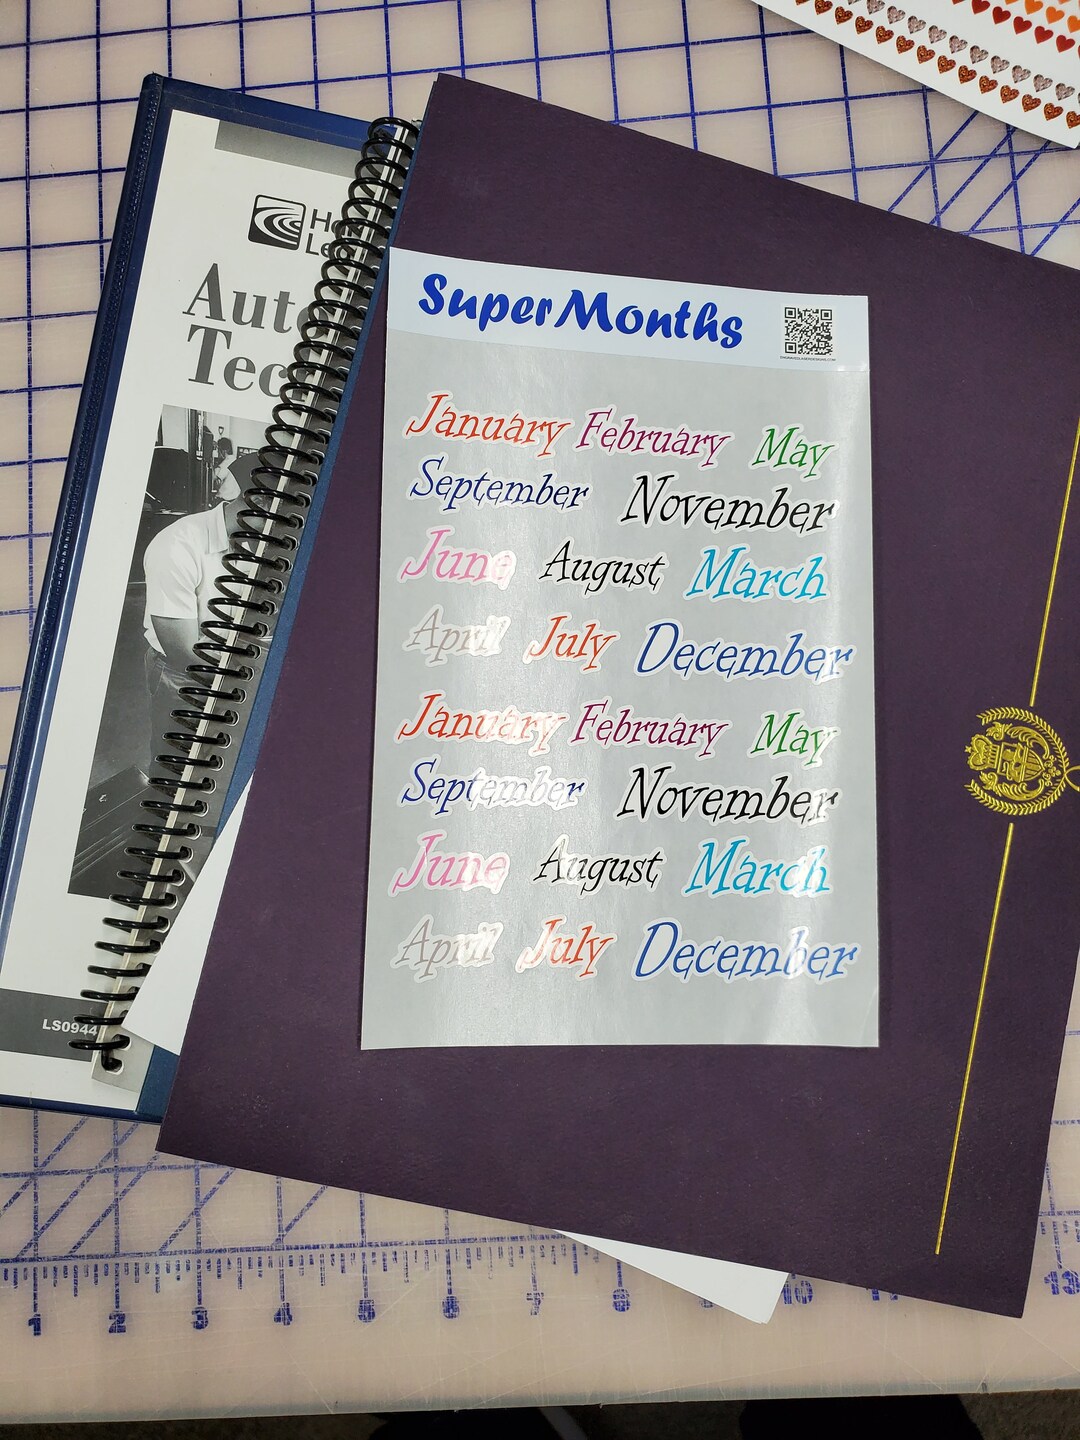 Auto
Tec
LS0944
Super Months
January February May
September November
June August March
April July December
January February May
September November
June August March
April July December
1 2 3 4 5 6 7 8 10 11 13